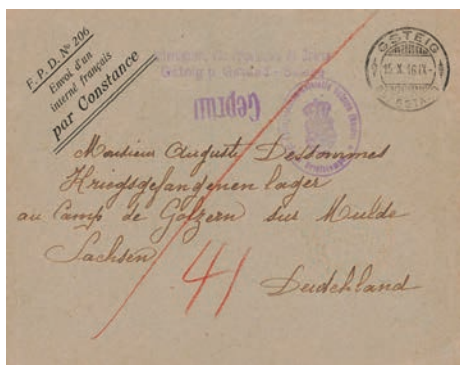 F. P. D. No 206
Envoi d'un
interné français
par Constance
GSTEIG
15.X.16.IX-
GSTAAD
Geprüft
Monsieur Auguste Dessommes
Kriegsgefangenen lager
au Camp de Golzern sur Mulde
Sachsen
41
Deutschland